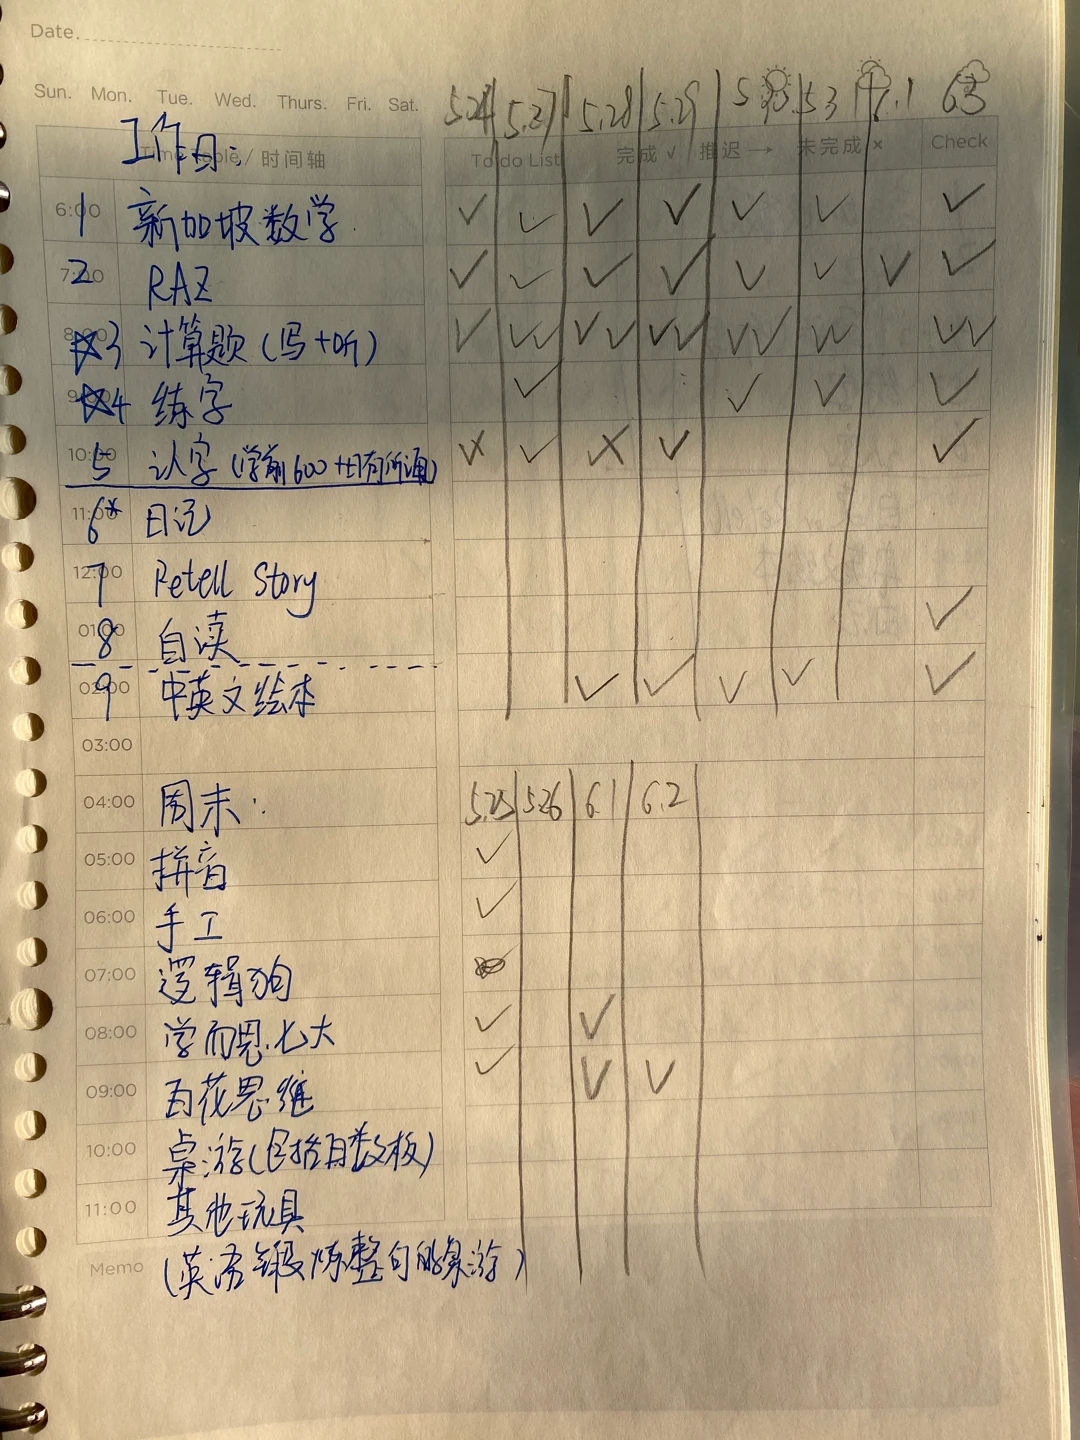 Date.
Sun. Mon. Tue. Wed. Thurs. Fri. Sat.
5.24 5.27 5.28 5.29 5.3 6.1 6.3
工作日:
Time Table / 时间轴 To do List 完成 √ 推迟 → 未完成 × Check
6:00 1 新加坡数学 ✓ ✓ ✓ ✓ ✓ ✓ ✓
7:00 2 RAZ ✓ ✓ ✓ ✓ ✓ ✓ ✓ ✓
8:00 3 计算题 (写+听) ✓ ✓✓ ✓✓ ✓✓ ✓✓ ✓✓ ✓✓
9:00 4 练字 ✓ ✓ ✓ ✓
10:00 5 认字 (学前600+日有所诵) × ✓ × ✓ ✓
11:00 6* 日记
12:00 7 Retell Story
01:00 8 自读 ✓
02:00 9 中英文绘本 ✓ ✓ ✓ ✓ ✓
03:00
04:00 周末: 5.25 5.26 6.1 6.2
05:00 拼音 ✓
06:00 手工 ✓
07:00 逻辑狗
08:00 学而思七大 ✓ ✓
09:00 百花思维 ✓ ✓ ✓
10:00 桌游(包括百数板)
11:00 其他玩具
Memo (英语锻炼整句的桌游)